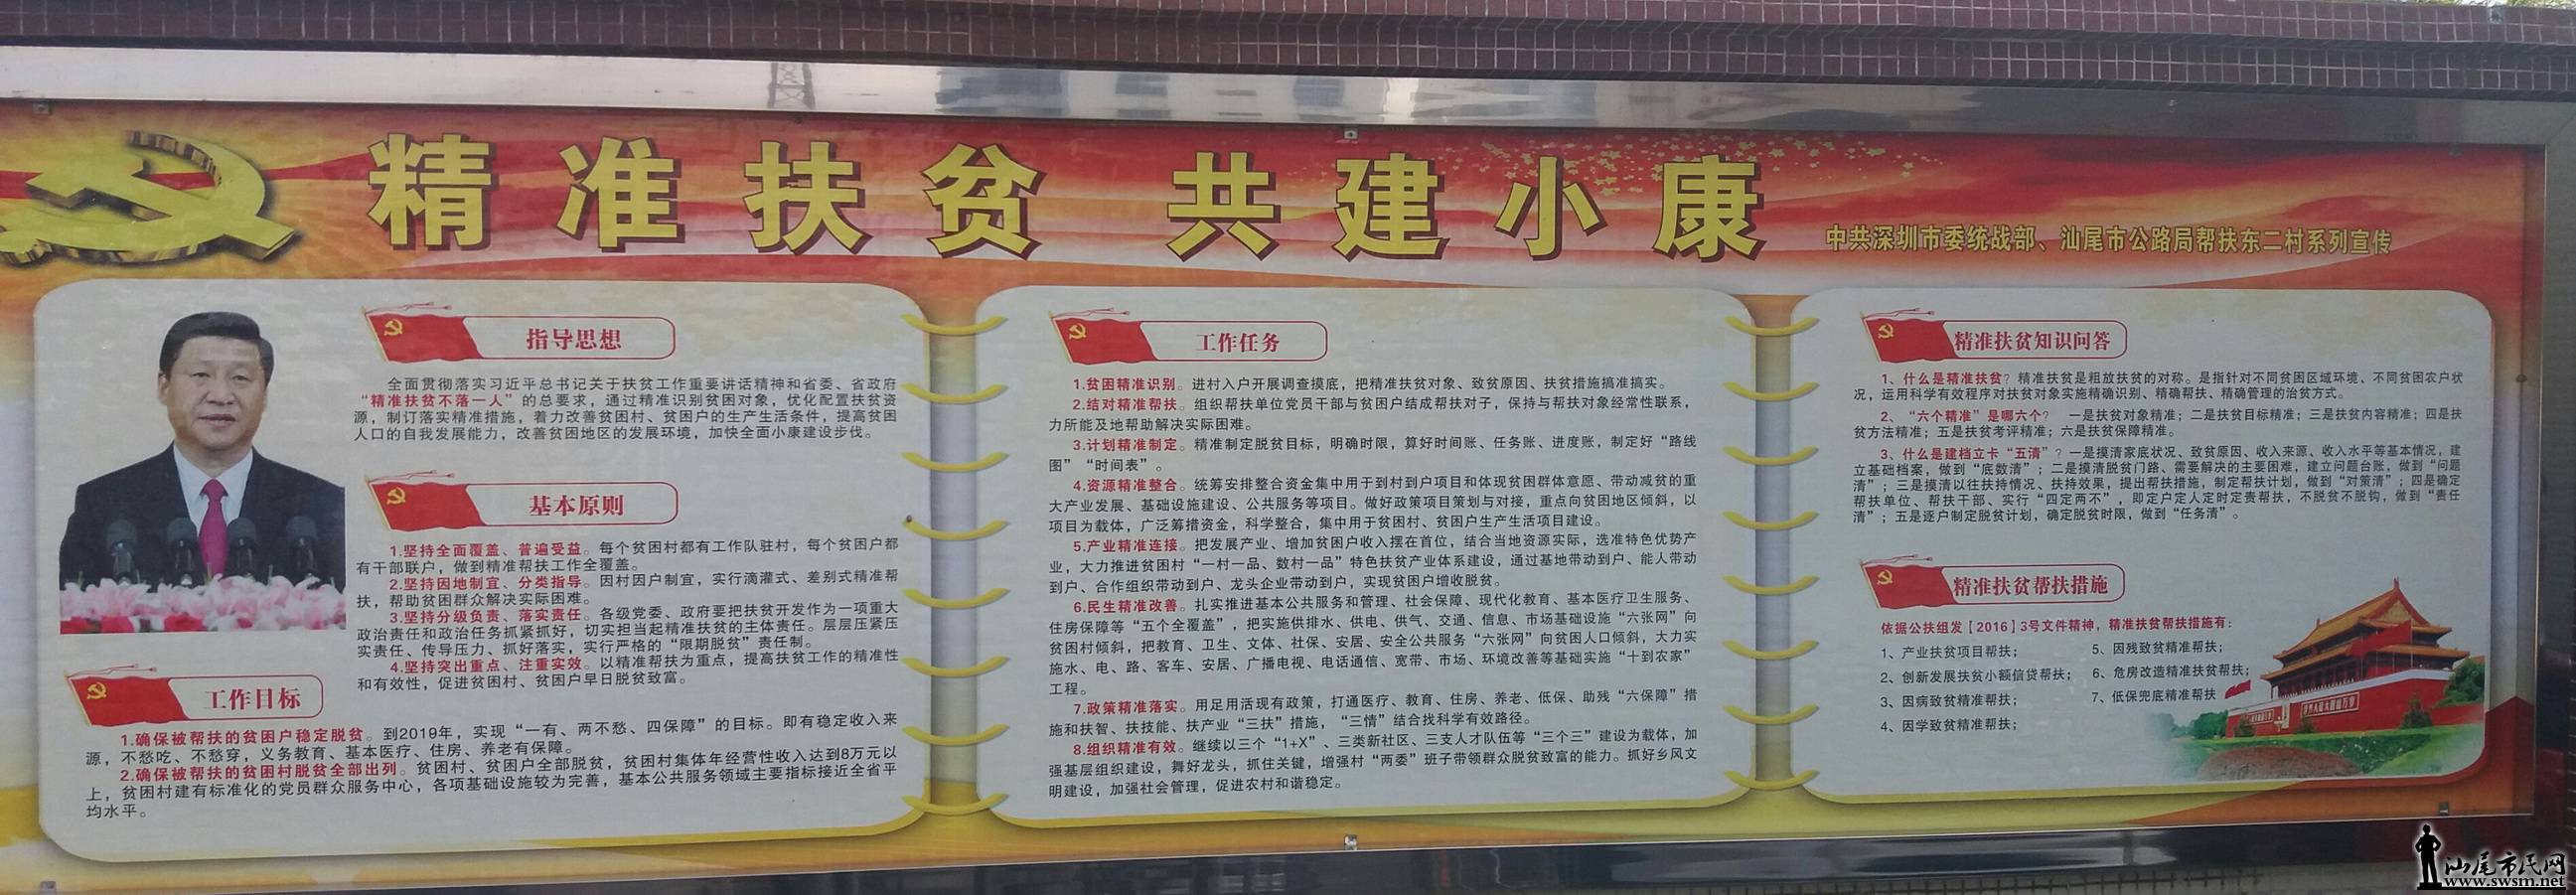 精准扶贫 共建小康
中共深圳市委统战部、汕尾市公路局帮扶东二村系列宣传
指导思想
全面贯彻落实习近平总书记关于扶贫工作重要讲话精神和省委、省政府
“精准扶贫不落一人”的总要求，通过精准识别贫困对象，优化配置扶贫资
源，制订落实精准措施，着力改善贫困村、贫困户的生产生活条件，提高贫困
人口的自我发展能力，改善贫困地区的发展环境，加快全面小康建设步伐。
基本原则
1.坚持全面覆盖、普遍受益。每个贫困村都有工作队驻村，每个贫困户都
有干部联户，做到精准帮扶工作全覆盖。
2.坚持因地制宜、分类指导。因村因户制宜，实行滴灌式、差别式精准帮
扶，帮助贫困群众解决实际困难。
3.坚持分级负责、落实责任。各级党委、政府要把扶贫开发作为一项重大
政治责任和政治任务抓紧抓好，切实担当起精准扶贫的主体责任。层层压紧压
实责任、传导压力、抓好落实，实行严格的“限期脱贫”责任制。
4.坚持突出重点、注重实效。以精准帮扶为重点，提高扶贫工作的精准性
和有效性，促进贫困村、贫困户早日脱贫致富。
工作目标
1.确保被帮扶的贫困户稳定脱贫。到2019年，实现“一有、两不愁、四保障”的目标。即有稳定收入来
源，不愁吃、不愁穿，义务教育、基本医疗、住房、养老有保障。
2.确保被帮扶的贫困村脱贫全部出列。贫困村、贫困户全部脱贫，贫困村集体年经营性收入达到8万元以
上，贫困村建有标准化的党员群众服务中心，各项基础设施较为完善，基本公共服务领域主要指标接近全省平
均水平。
工作任务
1.贫困精准识别。进村入户开展调查摸底，把精准扶贫对象、致贫原因、扶贫措施搞准搞实。
2.结对精准帮扶。组织帮扶单位党员干部与贫困户结成帮扶对子，保持与帮扶对象经常性联系，
力所能及地帮助解决实际困难。
3.计划精准制定。精准制定脱贫目标，明确时限，算好时间账、任务账、进度账，制定好“路线
图”“时间表”。
4.资源精准整合。统筹安排整合资金集中用于到村到户项目和体现贫困群体意愿、带动减贫的重
大产业发展、基础设施建设、公共服务等项目。做好政策项目策划与对接，重点向贫困地区倾斜，以
项目为载体，广泛筹措资金，科学整合，集中用于贫困村、贫困户生产生活项目建设。
5.产业精准连接。把发展产业、增加贫困户收入摆在首位，结合当地资源实际，选准特色优势产
业，大力推进贫困村“一村一品、数村一品”特色扶贫产业体系建设，通过基地带动到户、能人带动
到户、合作组织带动到户、龙头企业带动到户，实现贫困户增收脱贫。
6.民生精准改善。扎实推进基本公共服务和管理、社会保障、现代化教育、基本医疗卫生服务、
住房保障等“五个全覆盖”，把实施供排水、供电、供气、交通、信息、市场基础设施“六张网”向
贫困村倾斜，把教育、卫生、文体、社保、安居、安全公共服务“六张网”向贫困人口倾斜，大力实
施水、电、路、客车、安居、广播电视、电话通信、宽带、市场、环境改善等基础实施“十到农家”
工程。
7.政策精准落实。用足用活现有政策，打通医疗、教育、住房、养老、低保、助残“六保障”措
施和扶智、扶技能、扶产业“三扶”措施，“三情”结合找科学有效路径。
8.组织精准有效。继续以三个“1+X”、三类新社区、三支人才队伍等“三个三”建设为载体，加
强基层组织建设，舞好龙头，抓住关键，增强村“两委”班子带领群众脱贫致富的能力。抓好乡风文
明建设，加强社会管理，促进农村和谐稳定。
精准扶贫知识问答
1、什么是精准扶贫？精准扶贫是粗放扶贫的对称。是指针对不同贫困区域环境、不同贫困农户状
况，运用科学有效程序对扶贫对象实施精确识别、精确帮扶、精确管理的治贫方式。
2、“六个精准”是哪六个？ 一是扶贫对象精准；二是扶贫目标精准；三是扶贫内容精准；四是扶
贫方法精准；五是扶贫考评精准；六是扶贫保障精准。
3、什么是建档立卡“五清”？一是摸清家底状况、致贫原因、收入来源、收入水平等基本情况，建
立基础档案，做到“底数清”；二是摸清脱贫门路、需要解决的主要困难，建立问题台账，做到“问题
清”；三是摸清以往扶持情况、扶持效果，提出帮扶措施，制定帮扶计划，做到“对策清”；四是确定
帮扶单位、帮扶干部、实行“四定两不”，即定户定人定时定责帮扶，不脱贫不脱钩，做到“责任
清”；五是逐户制定脱贫计划，确定脱贫时限，做到“任务清”。
精准扶贫帮扶措施
依据公扶组发【2016】3号文件精神，精准扶贫帮扶措施有：
1、产业扶贫项目帮扶；
2、创新发展扶贫小额信贷帮扶；
3、因病致贫精准帮扶；
4、因学致贫精准帮扶；
5、因残致贫精准帮扶；
6、危房改造精准扶贫帮扶；
7、低保兜底精准帮扶
汕尾市民网
www.swsm.net